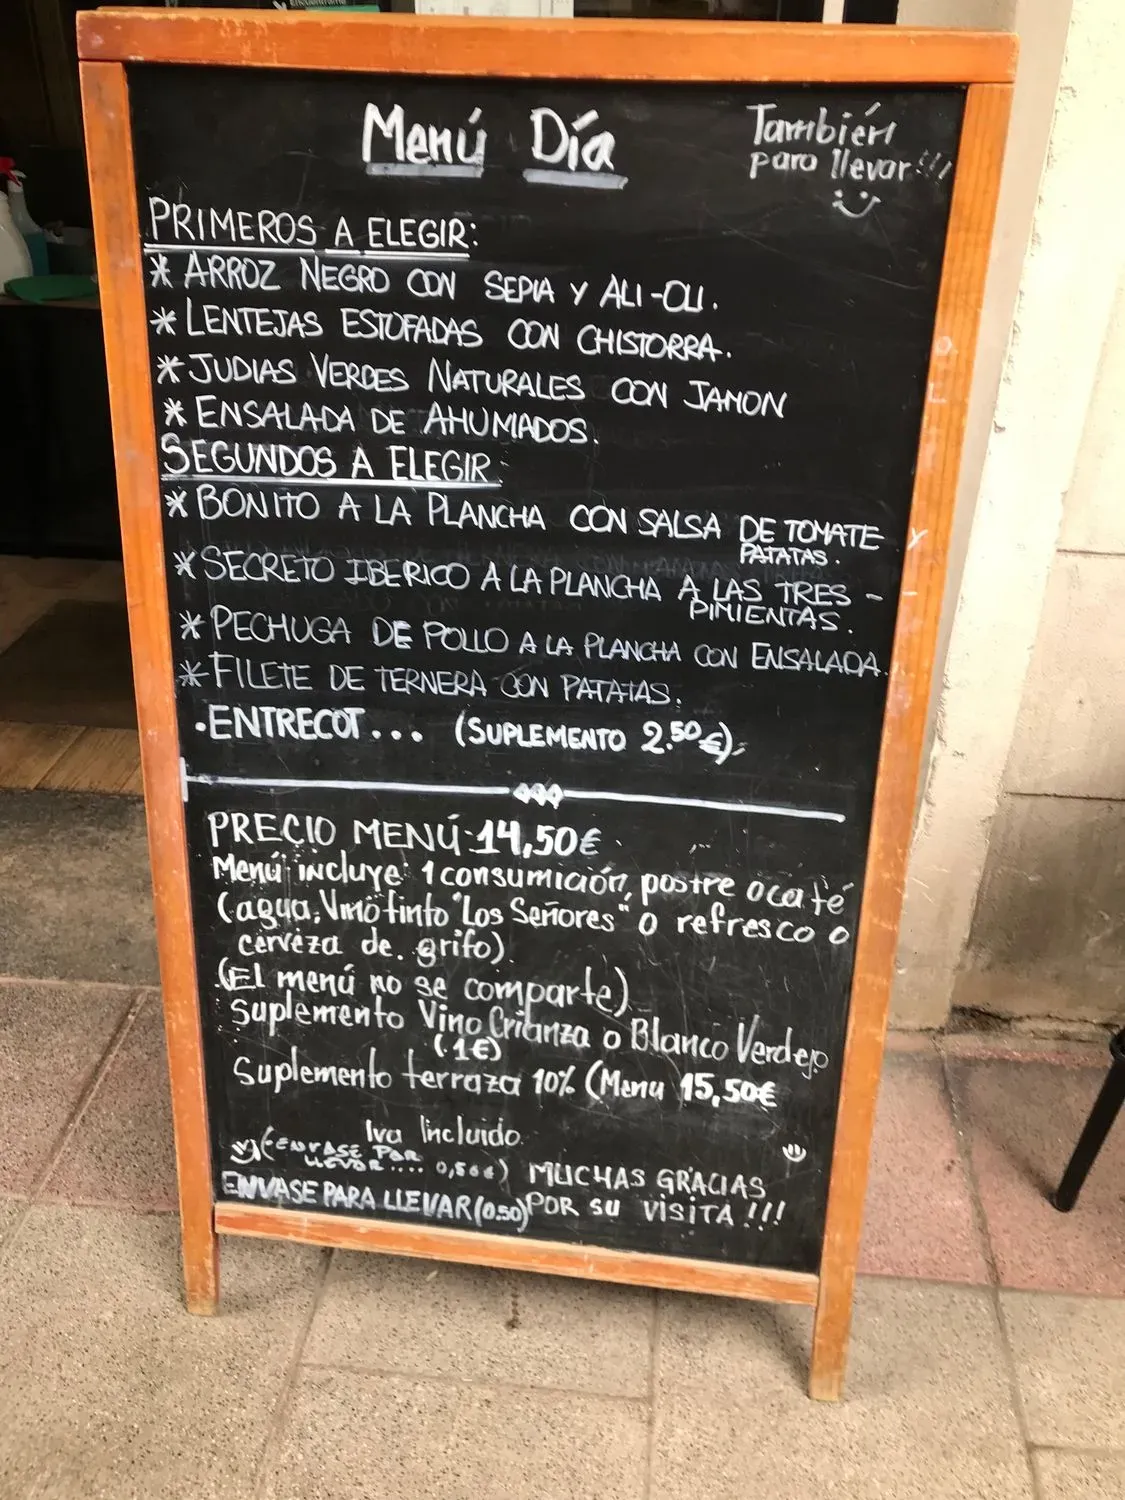 Menú Día
También
para llevar!!!
PRIMEROS A ELEGIR:
* ARROZ NEGRO CON SEPIA Y ALI-OLI.
* LENTEJAS ESTOFADAS CON CHISTORRA.
* JUDIAS VERDES NATURALES CON JAMON
* ENSALADA DE AHUMADOS.
SEGUNDOS A ELEGIR
* BONITO A LA PLANCHA CON SALSA DE TOMATE Y
PATATAS.
* SECRETO IBERICO A LA PLANCHA A LAS TRES -
PIMIENTAS.
* PECHUGA DE POLLO A LA PLANCHA CON ENSALADA.
* FILETE DE TERNERA CON PATATAS.
. ENTRECOT... (SUPLEMENTO 2.50 €).
PRECIO MENÚ-14,50€
Menú incluye: 1 consumición, postre o café
(agua, Vino tinto "Los Señores" o refresco o
cerveza de grifo)
(El menú no se comparte)
Suplemento Vino Crianza o Blanco Verdejo
(1€)
Suplemento terraza 10% (Menu 15,50€
Iva Incluido.
(ENVASE PAR
LLEVAR.... 0,50€)
MUCHAS GRACIAS
ENVASE PARA LLEVAR (0.50)
POR SU VISITA!!!